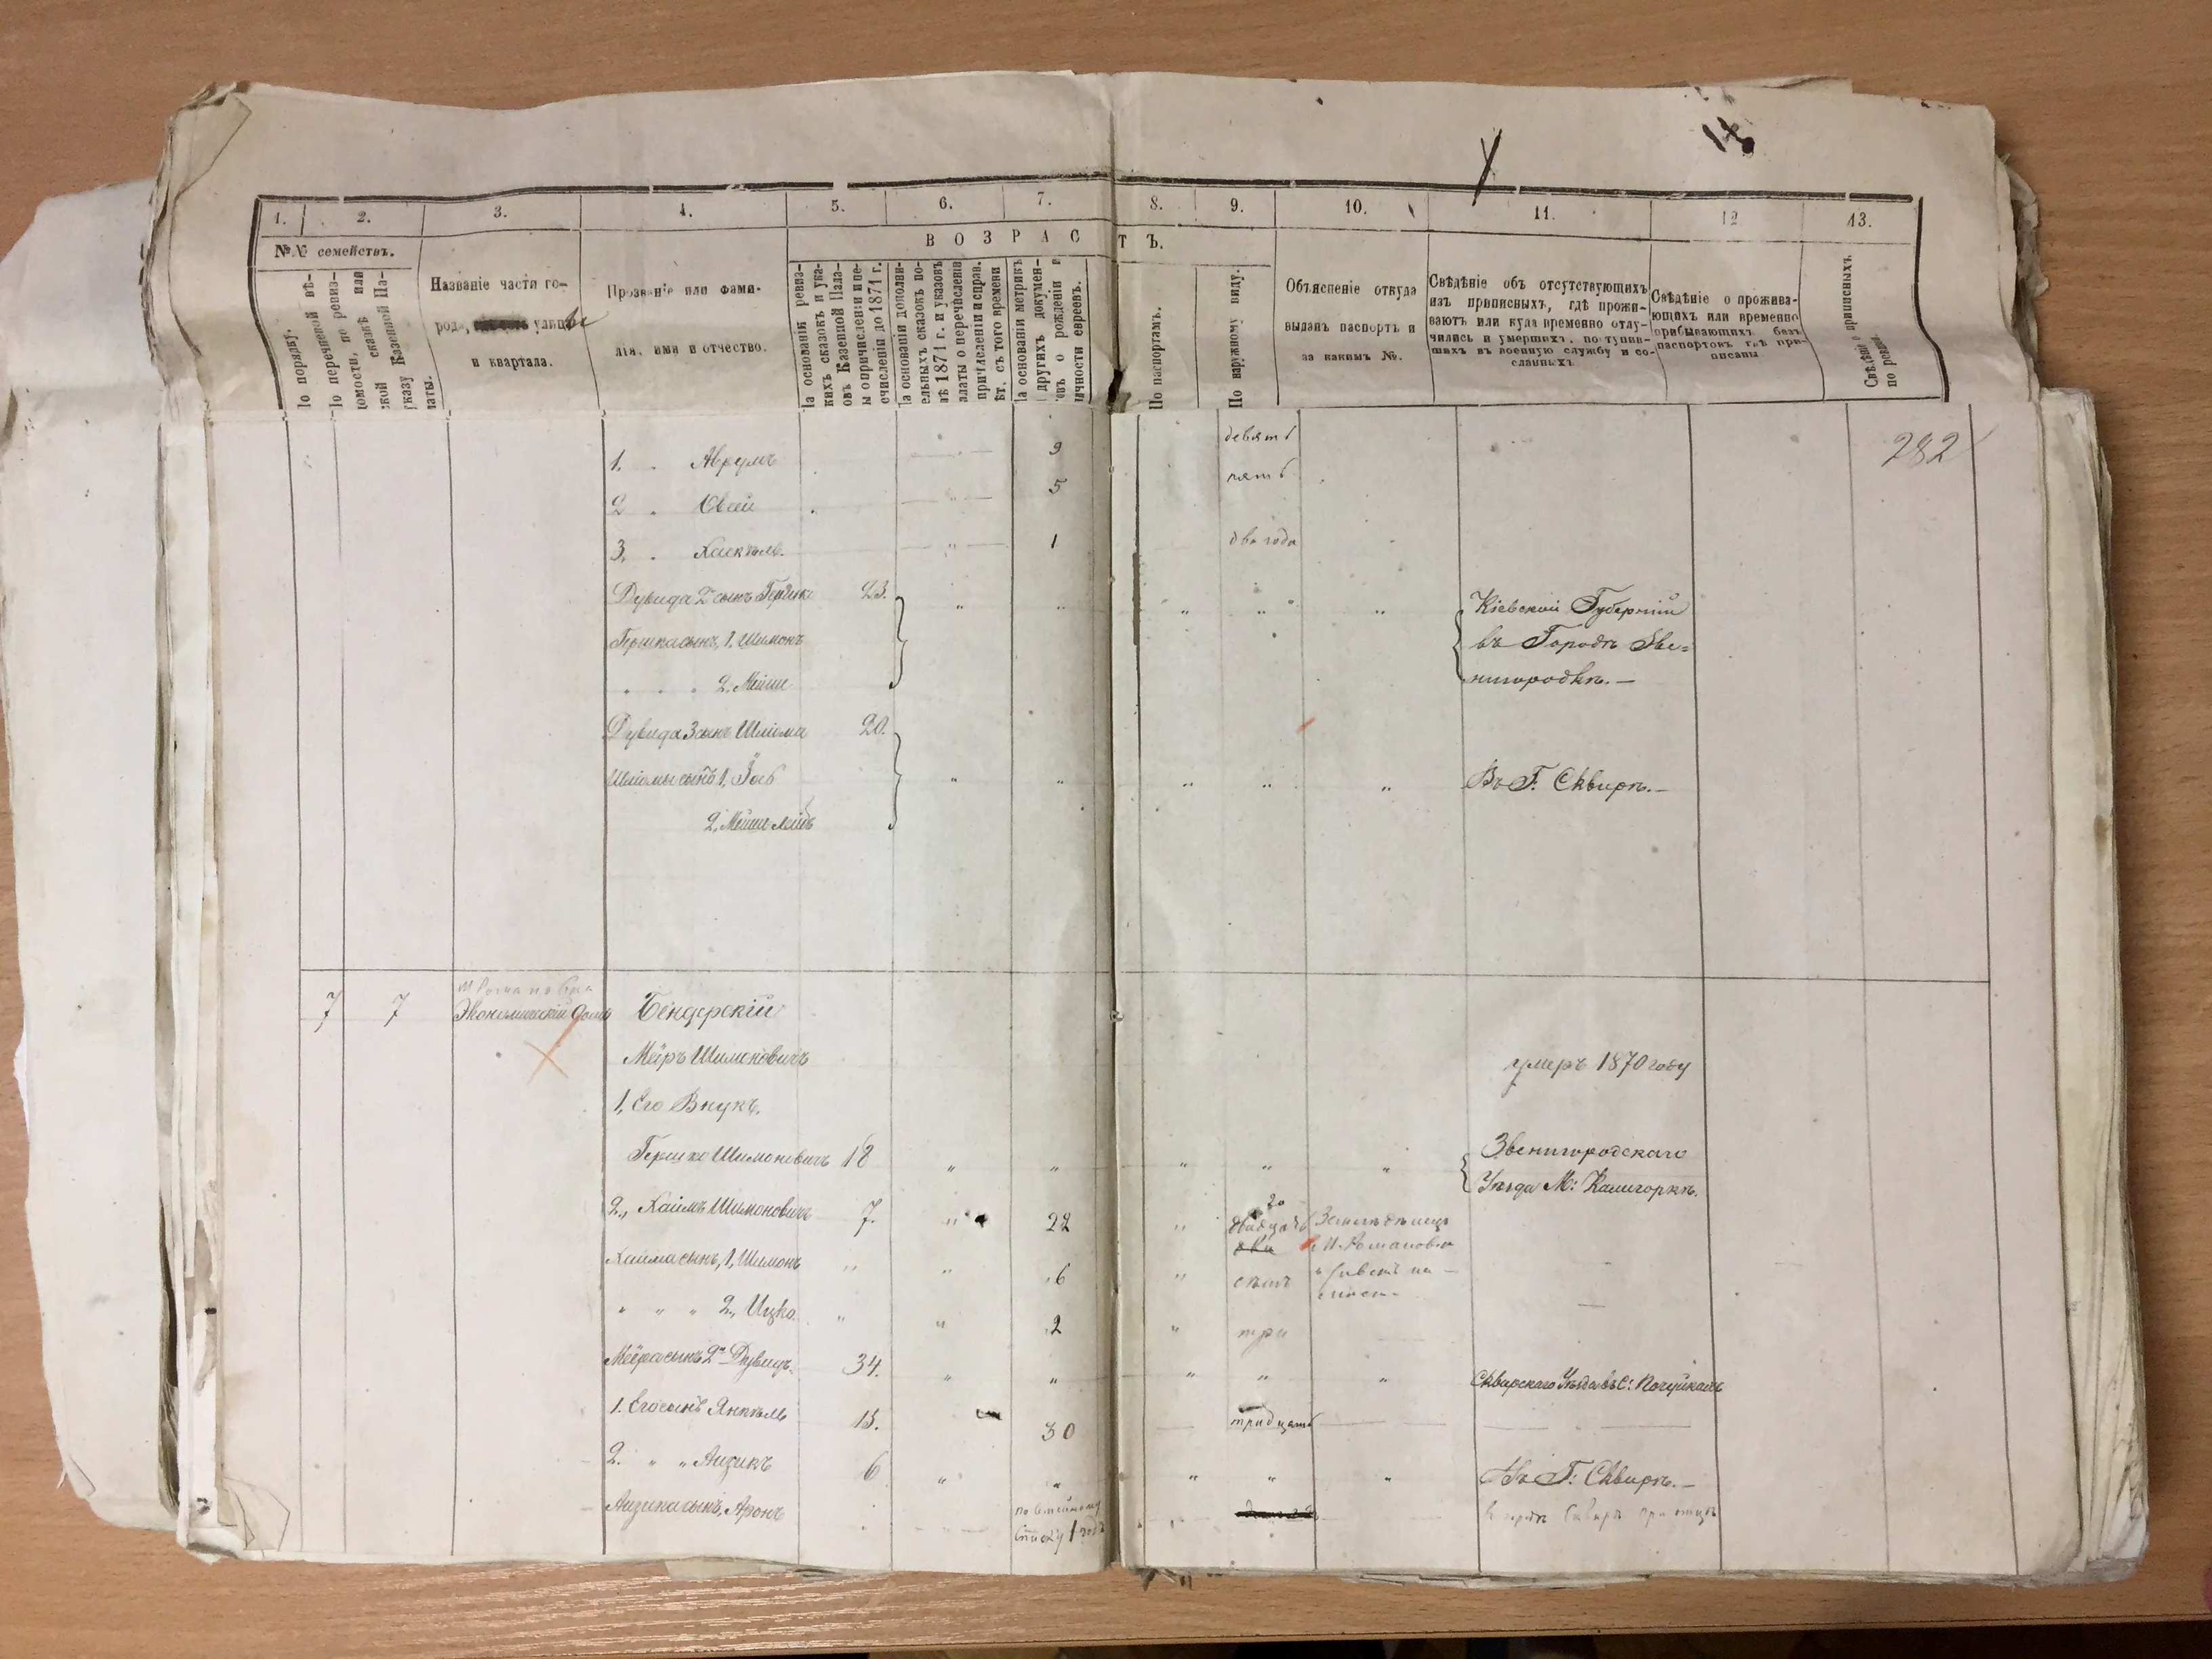 1. 2. 3. 4. 5. 6. 7. 8. 9. 10. 11. 12 13.
№№ семействъ.
ВОЗРАСТЪ.
По порядку.
По перечневой вѣдомости, по ревизской сказкѣ или указу Казенной Палаты.
Названіе части го-
рода, улицы
и квартала.
Прозваніе или фами-
лія, имя и отчество.
На основаніи ревиз-
кихъ сказокъ и ука-
овъ Казенной Пала-
ы о причисленіи и пе-
счисленіи до 1871 г.
а основаніи дополни-
ельныхъ сказокъ по-
лѣ 1871 г. и указовъ
алаты о перечисленіи
причисленіи и справ.
ѣт. съ того времени
а основаніи метрикъ
другихъ докумен-
овъ о рожденіи и
ичности евреевъ.
По паспортамъ.
По наружному виду.
Объясненіе откуда
выданъ паспортъ и
за какимъ №.
Свѣдѣніе объ отсутствующихъ
изъ приписныхъ, гдѣ прожи-
ваютъ или куда временно отлу-
чились и умершихъ, поступив-
шихъ въ военную службу и со-
сланныхъ
Свѣдѣніе о прожива-
ющихъ или временно
прибывающихъ безъ
паспортовъ гдѣ при-
писаны
Свѣдѣніе о приписныхъ
по ревиз.
282
1. Аврумъ 9 девять
2 Овсей 5 пять
3. Хаскель. 1 два года
Дувида 2 сынъ Гершко 23. Кіевской Губерніи
Гершка сынъ, 1, Шимонъ въ Городѣ Зве=
2, Мойше нигородкѣ.—
Дувида 3 сынъ Шлiома 20.
Шліомы сынъ 1, Іось Въ Г. Сквирѣ.—
2, Мошко Лейбъ
7 7 Экономическій домъ Бендерскій
Мейръ Шимоновичъ умеръ 1870 году
1, Его Внукъ.
Гершко Шимоновичъ 18 Звенигородскаго
Уѣзда М: Калигоркѣ.
2, Хаимъ Шимоновичъ 7. 22 20 двадцать два
Хаима сынъ, 1, Шимонъ 6 семь
2, Ицко. 2 три
Мейра сынъ 2й Дувидъ 34. Сквирскаго Уѣзда въ С: Почуйкахъ
1. Его сынъ Янкель 15. 30 тридцать
2. Айзикъ 6 Въ Г: Сквирѣ.—
Айзика сынъ, Аронъ по семейному въ городѣ Сквирѣ при отцѣ
списку 1 годъ